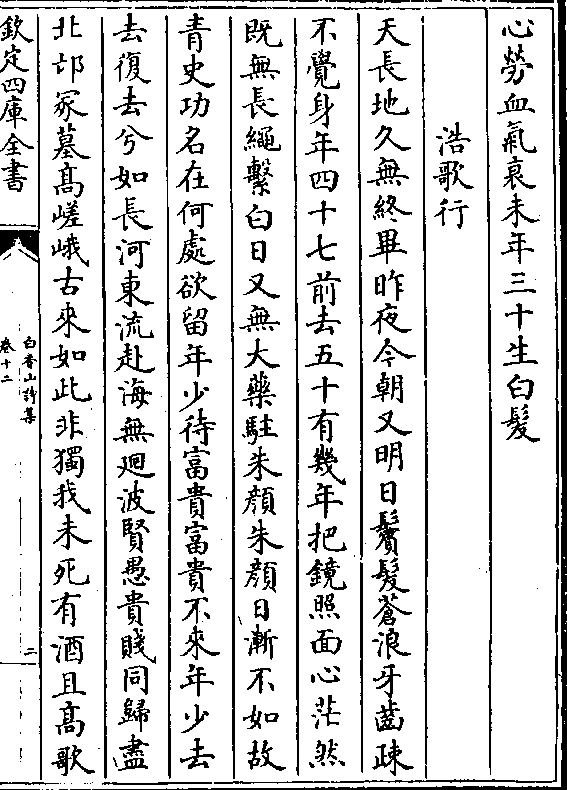 心勞血氣衰未年三十生白髮
浩歌行
天長地久無終畢昨夜今朝又明日鬢髮蒼浪牙齒疎
不覺身年四十七前去五十有幾年把鏡照面心茫然
既無長繩繫白日又無大藥駐朱顔朱顔日漸不如故
青史功名在何處欲留年少待富貴富貴不來年少去
去復去兮如長河東流赴海無廻波賢愚貴賤同歸盡
北邙冢墓髙嵯峨古來如此非獨我未死有酒且髙歌
欽定四庫全書
白香山詩集
卷十二
二